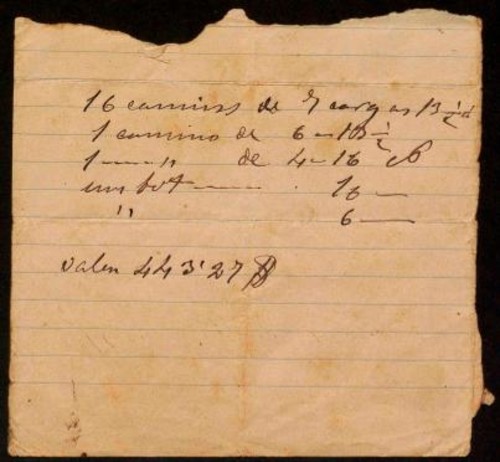 16 caminos de 7 cargas 13 1/2
1 camino de 6 - 13 1/2
1 — " de 4 - 16
una bot — 16 —
" 6 —
valen 443'27